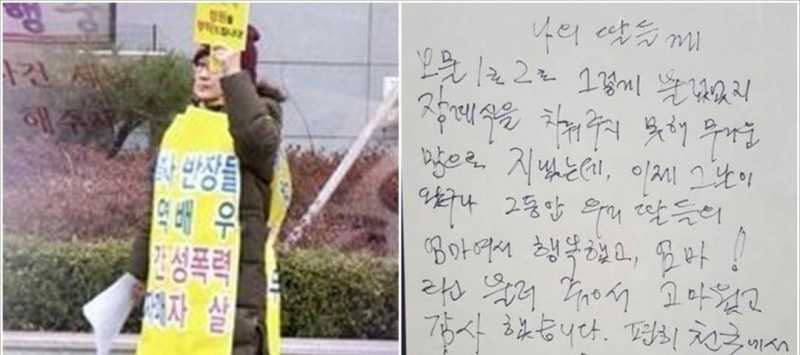 행
사건
해주세
응원을
부탁드립니다
사 반장들
역배우
간 성폭력
자매 자살
나의 딸들께
모물 1호 2호 그렇게
장례식을 치뤄주지 못해 무거운
맘으로 지냈는데, 이제 그날이
왔구나 그동안 우리 딸들의
엄마여서 행복했고, 엄마!
라고 불러 줘서 고마웠고
감사 했습니다. 편히 천국에서